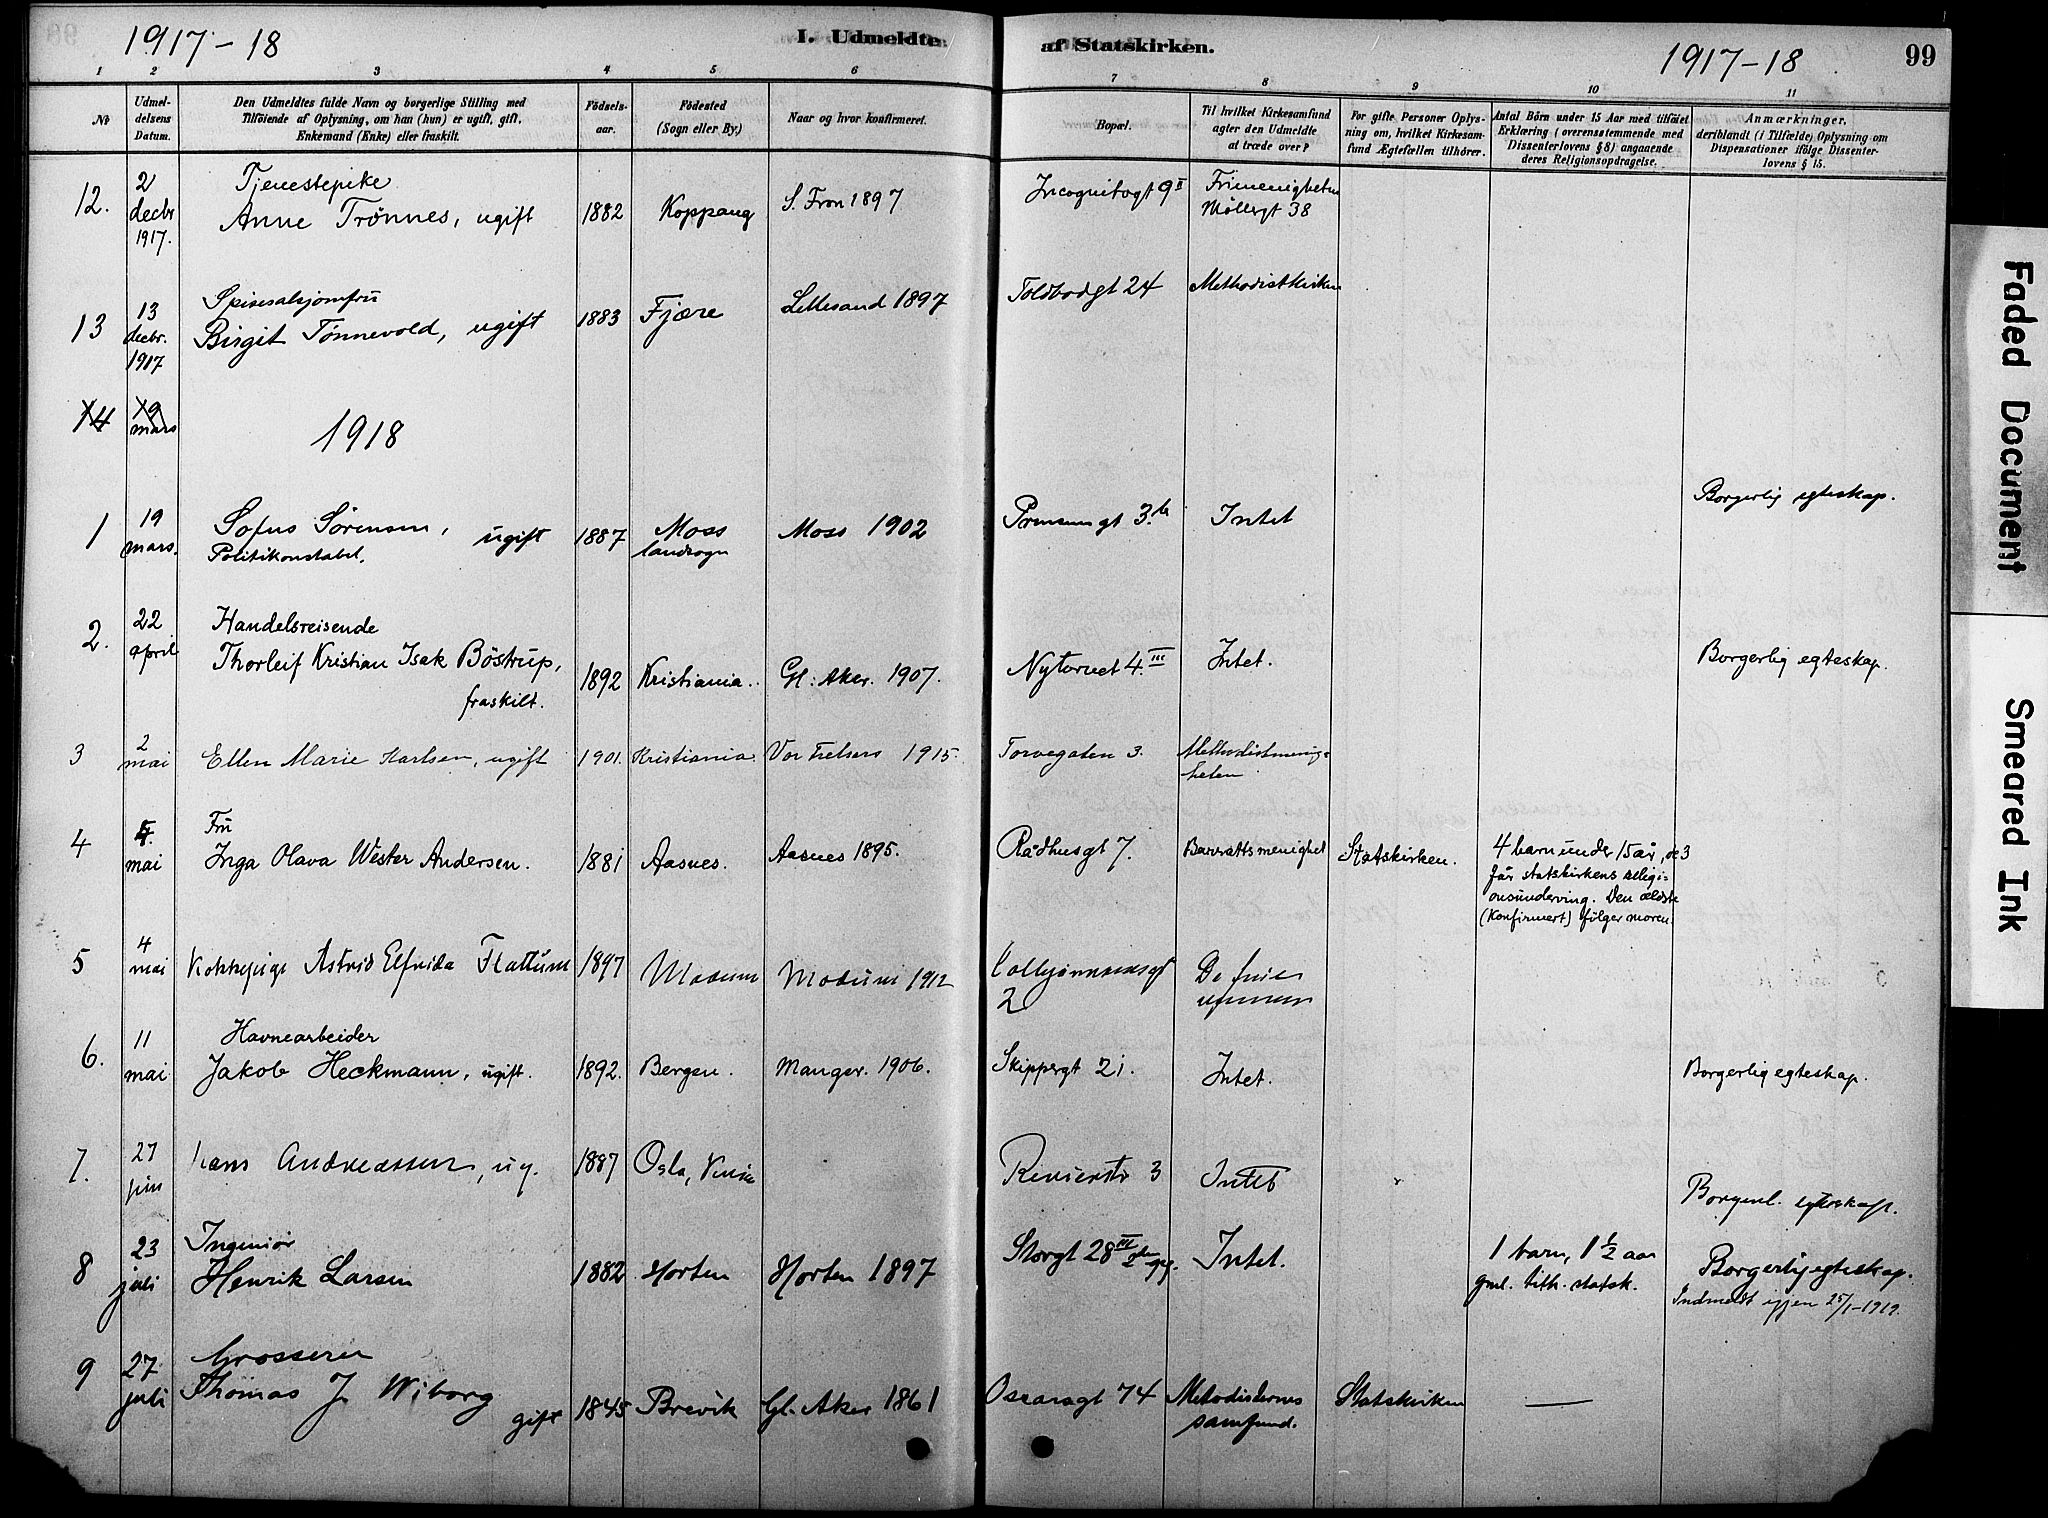 1917-18
I. Udmeldte af Statskirken.
1917-18
99
1 2 3 4 5 6 7 8 9 10 11
No
Udmel-
delsens
Datum.
Den Udmeldtes fulde Navn og borgerlige Stilling med
Tilföiende af Oplysning, om han (hun) er ugift, gift,
Enkemand (Enke) eller fraskilt.
Födsels-
aar.
Födested
(Sogn eller By.)
Naar og hvor konfirmeret.
Bopæl.
Til hvilket Kirkesamfund
agter den Udmeldte
at træde over?
For gifte Personer Oplys-
ning om, hvilket Kirkesam-
fund Ægtefællen tilhörer.
Antal Börn under 15 Aar med tilföiet
Erklæring (overensstemmende med
Dissenterlovens § 8) angaaende
deres Religionsopdragelse.
Anmærkninger,
deriblandt (i Tilfælde) Oplysning om
Dispensationer ifölge Dissenter-
lovens § 15.
12.
2
decbr
1917.
Tjenestepike
Anne Trönnes, ugift
1882
Koppang
S. Fron 1897
Incognitogt 9 II
Frimenigheten
Möllergt 38
13
13
decbr.
1917
Spisesalsjomfru
Birgit Tönnevold, ugift
1883
Fjære
Lillesand 1897
Toldbodgt 24
Methodistkirken
14
19
mars
1918
1
19
mars.
Sofus Sörensen, ugift
Politikonstabel.
1887
Moss
landsogn
Moss 1902
Prinsensgt 3.b
Intet
Borgerlig egteskap.
2.
22
april
Handelsreisende
Thorleif Kristian Isak Böstrup,
fraskilt.
1892
Kristiania.
Gl: Aker. 1907.
Nytorvet 4. III
Intet.
Borgerlig egteskap.
3
2
mai
Ellen Marie Karlsen, ugift
1901.
Kristiania
Vor Frelsers 1915.
Torvegaten 3.
Methodistmenig-
heten
4
mai
Fru
Inga Olava Wester Andersen.
1881
Aasnes.
Aasnes 1895.
Rådhusgt 7.
Barrattsmenighet
Statskirken.
4 barn under 15 år, de 3
får statskirkens religi-
onsunderving. Den ældste
(konfirmert) fölger moren.
5
4
mai
Kokkepige Astrid Elfrida Flattum
1897
Modum
Modum 1912
2
De frie
venner
6.
11
mai
Havnearbeider
Jakob Heckmann, ugift.
1892.
Bergen.
Manger. 1906.
Skippergt 21.
Intet.
Borgerlig egteskap.
7.
27
jun
Hans Andreassen, ug.
1887
Oslo,
Revierstr 3
Intet
Borgerl. egteskap.
8
23
juli
Ingeniör
Henrik Larsen
1882
Horten
Horten 1897
Storgt 28 III
Intet.
1 barn, 1 1/2 aar
gml. tilh. statsk.
Borgerlig egteskap.
Indmeldt igjen 25/1-1919.
9
27
juli
Grosserer
Thomas J. Wiborg
gift
1845
Brevik
Gl. Aker 1861
Oscarsgt 74
Metodisternes
samfund.
Statskirken
—
Faded Document
Smeared Ink